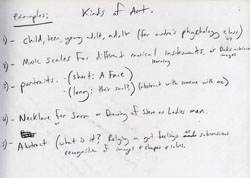 examples: Kinds of Art.
1)- child, teen, young adult, adult (for andre's phychology class)
2)- Music scales for different musical instruments, or
learning
3)- portraits. - (short: A Face)
(long: their soul?) (abstract with someone with me)
4)- Necklace for Snom or Drawing of Slom or Ladies man.
5)- Abstract (what is it? Relying on gut feelings subconscious
recognition of images + shapes + colors.